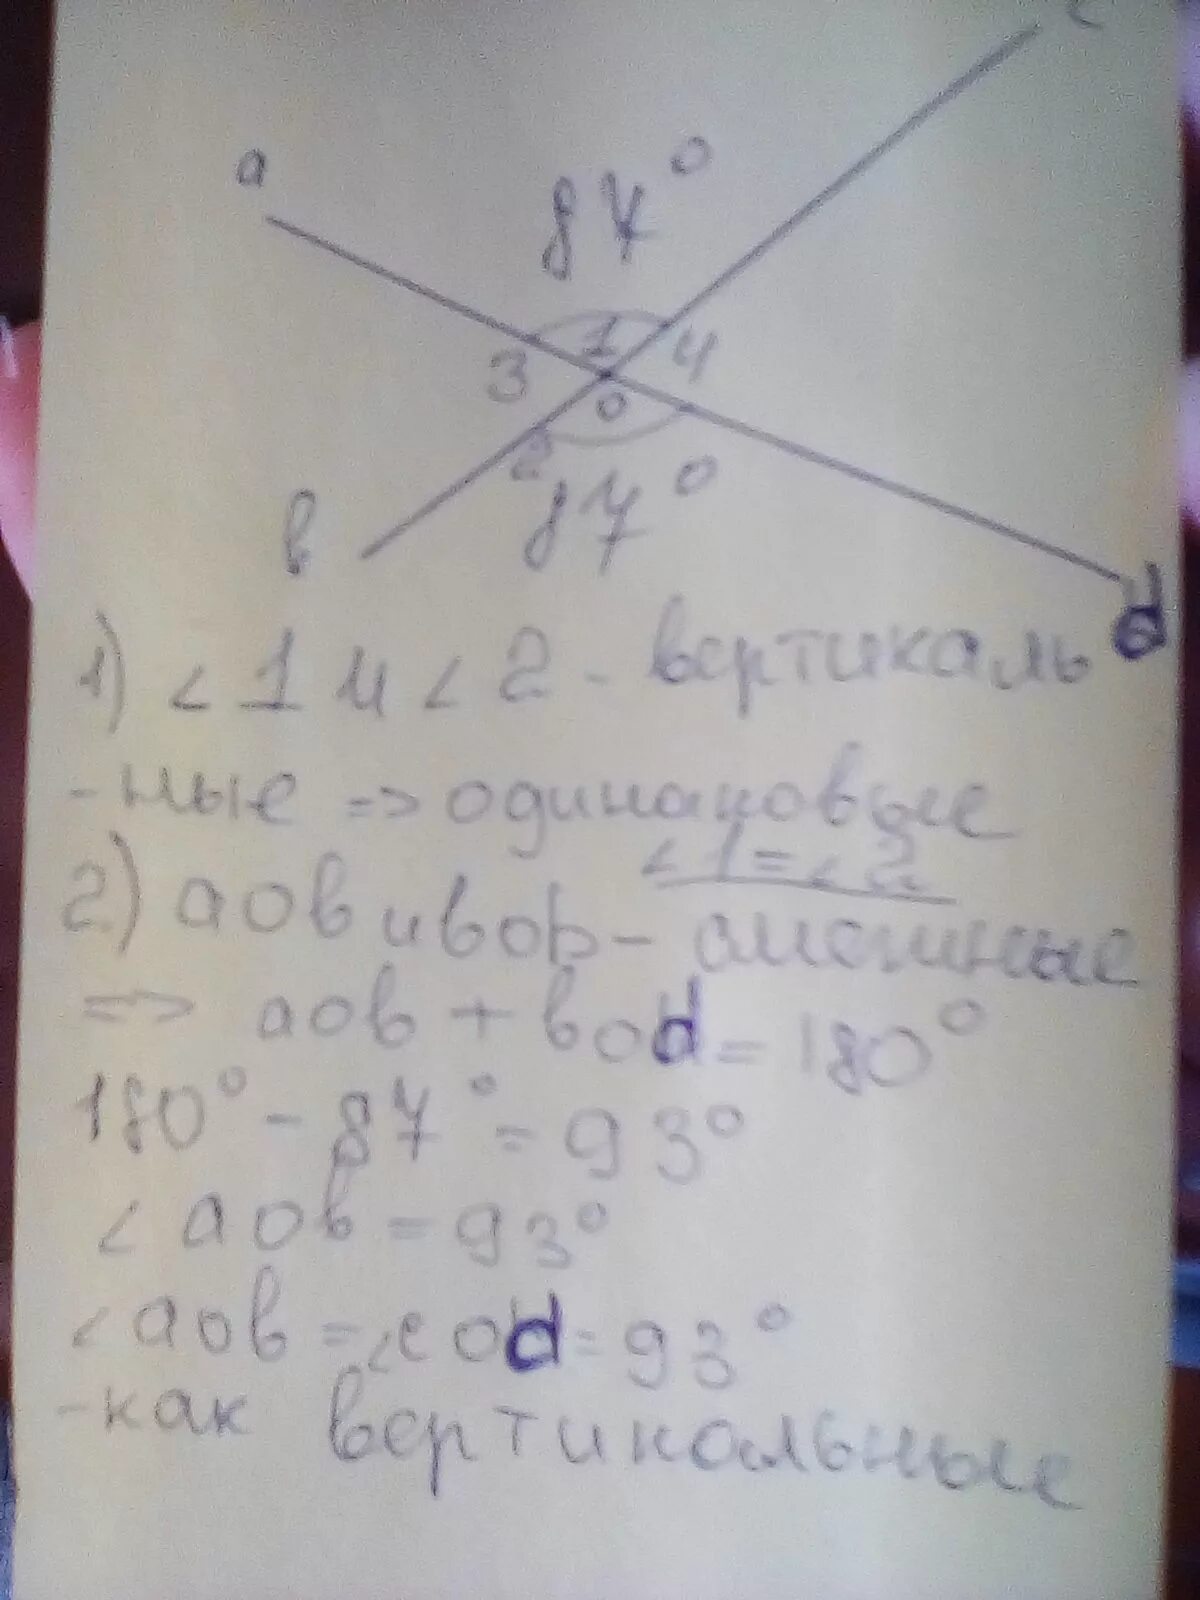 c
a
87°
3 1 4
o
2
87°
в
d
1) <1 и <2 - вертикаль
-ные => одинаковые
<1=<2
2) аов и вор - смежные
=> аов + воd = 180°
180° - 87° = 93°
<аов = 93°
<аов = <соd = 93°
-как вертикальные